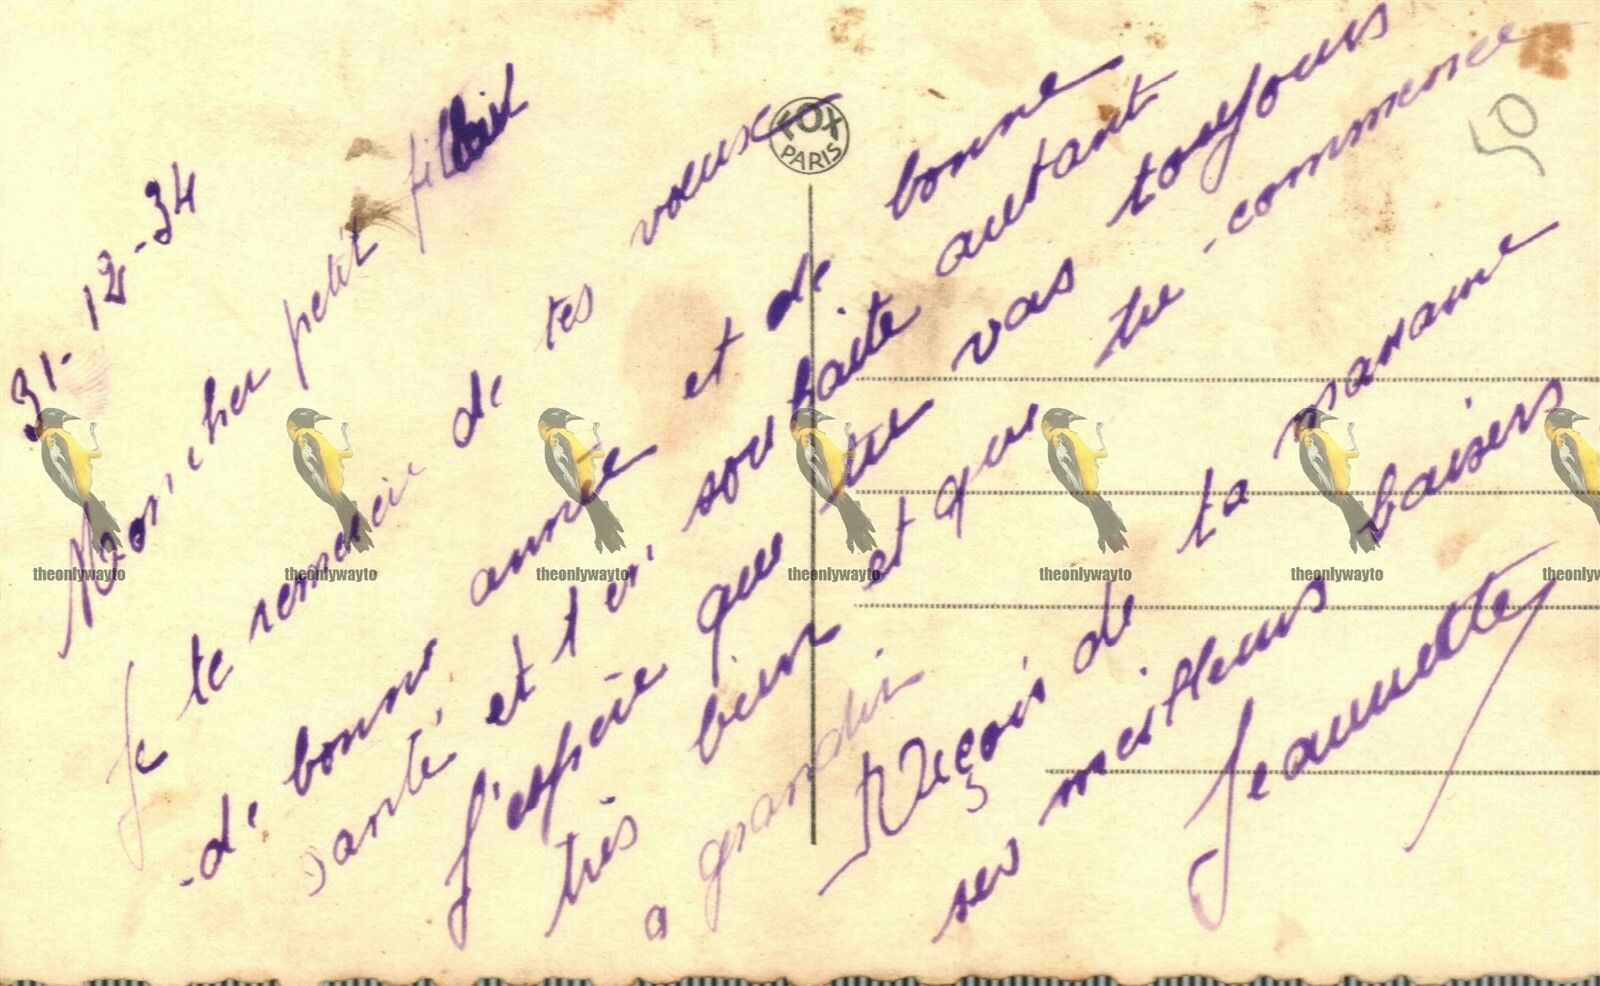 31-12-34
Mon cher petit
Je te remercie de tes voeux
de bonne année et de bonne
santé, et t'en souhaite autant
J'espère que tu vas toujours
très bien et que tu commence
a grandir
Reçois de ta marraine
ses meilleurs baisers
Jeannette
FOX
PARIS
50
theonlywayto
theonlywayto
theonlywayto
theonlywayto
theonlywayto
theonlywayto
theonlyw